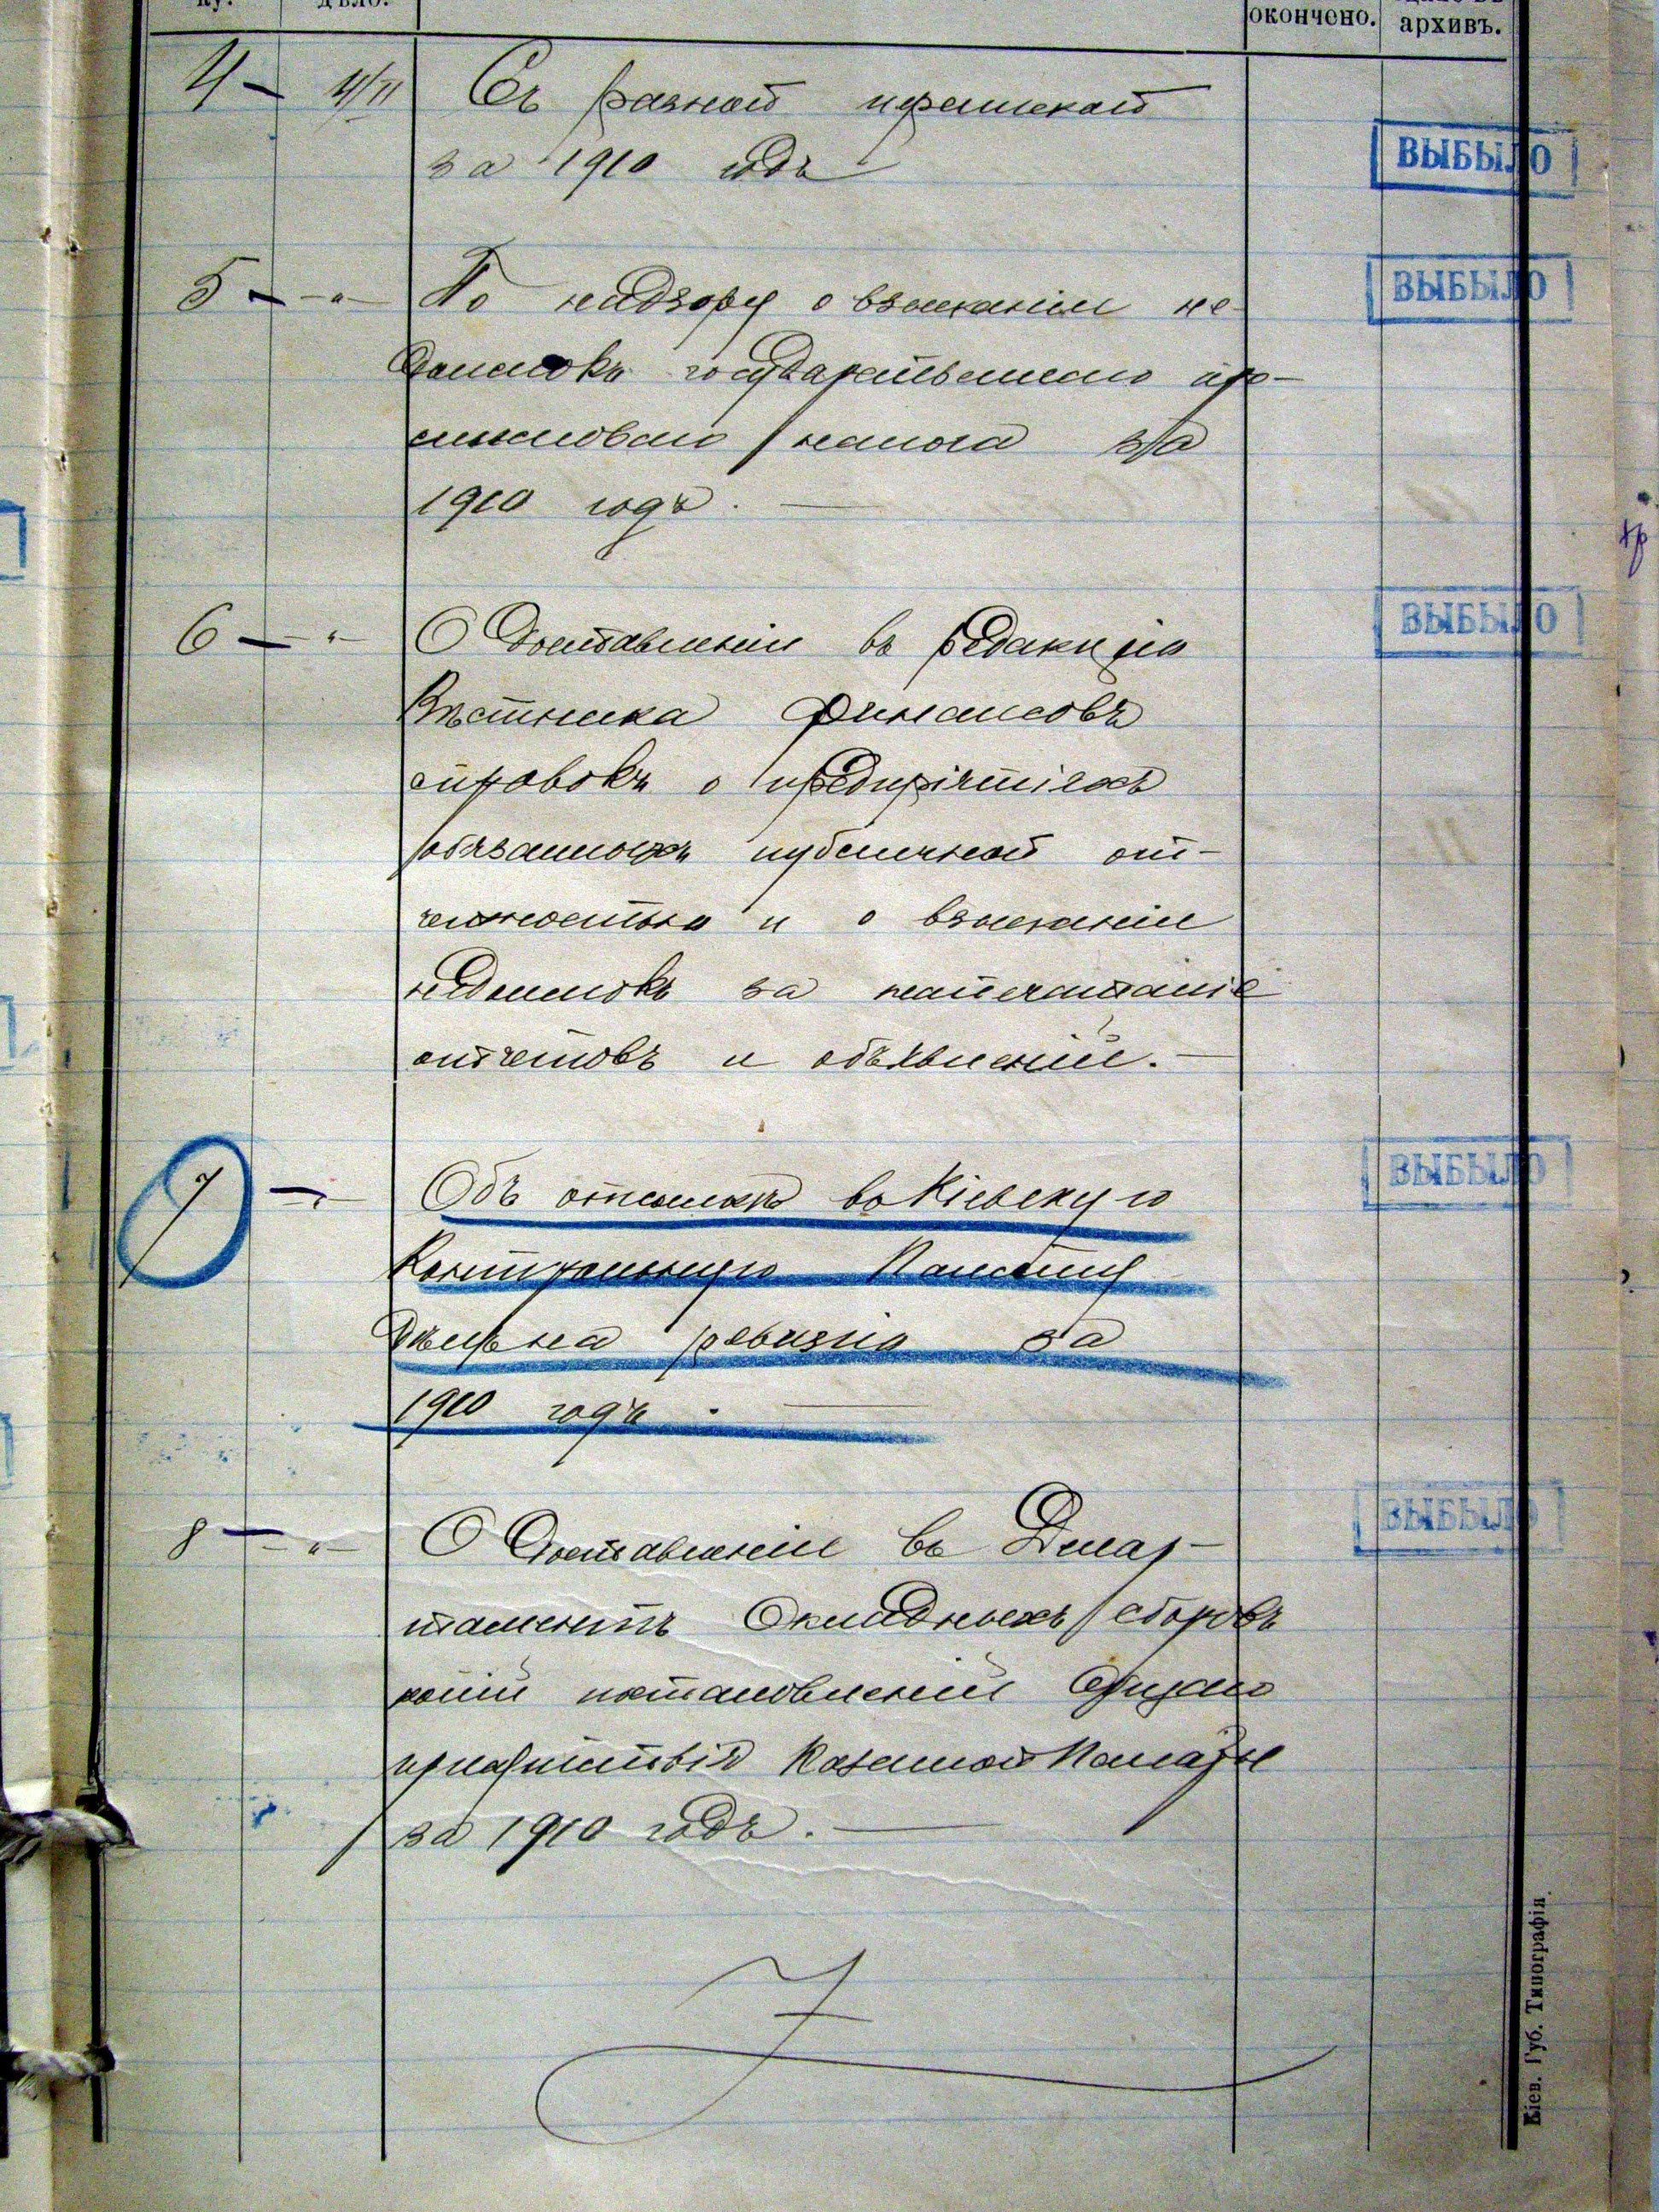 ку.
дѣло.
окончено.
архивъ.
4 —
Съ разной перепиской
за 1910 годъ
ВЫБЫЛО
5 — - " -
По надзору о взысканіи не-
доимокъ государственнаго про-
мысловаго налога за
1910 годъ. —
ВЫБЫЛО
6 — - " -
О доставленіи въ редакцію
Вѣстника Финансовъ
справокъ о предпріятіяхъ
обязанныхъ публичной от-
четностью и о взысканіи
недоимокъ за напечатаніе
отчетовъ и объявленій. —
ВЫБЫЛО
7 —
Объ отсылкѣ въ Кіевскую
Контрольную Палату
на ревизію за
1910 годъ. —
ВЫБЫЛО
8 — - " -
О доставленіи въ Депар-
таментъ Окладныхъ сборовъ
копій постановленій Общаго
присутствія Казенной Палаты
за 1910 годъ. —
ВЫБЫЛО
Кіев. Губ. Типографія.